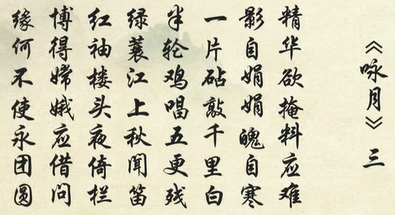 《咏月》三
精华欲掩料应难
影自娟娟魄自寒
一片砧敲千里白
半轮鸡唱五更残
绿蓑江上秋闻笛
红袖楼头夜倚栏
博得嫦娥应借问
缘何不使永团圆